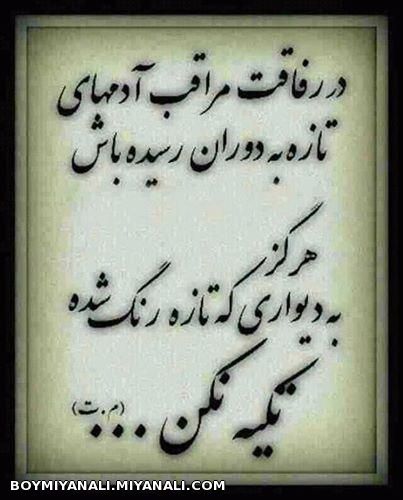 در رفاقت مراقب آدمهای
تازه به دوران رسیده باش
هرگز
به دیواری که تازه رنگ شده
تکیه نکن ...
(م.ت)
BOYMIYANALI.MIYANALI.COM